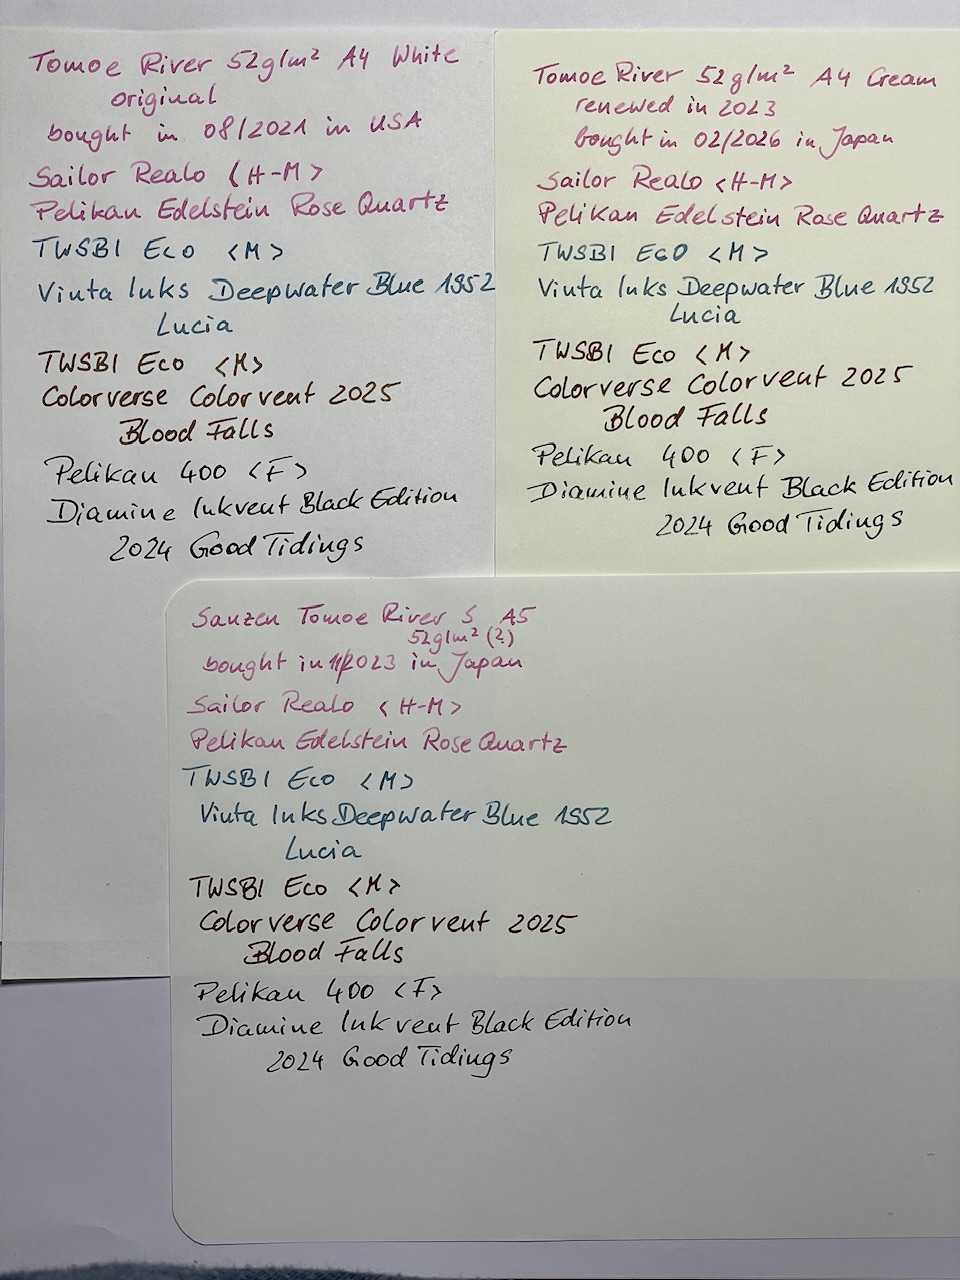 Tomoe River 52g/m² A4 White
original
bought in 08/2021 in USA
Sailor Realo <H-M>
Pelikan Edelstein Rose Quartz
TWSBI Eco <M>
Vinta Inks Deepwater Blue 1952
Lucia
TWSBI Eco <M>
Colorverse Colorvent 2025
Blood Falls
Pelikan 400 <F>
Diamine Inkvent Black Edition
2024 Good Tidings
Tomoe River 52g/m² A4 Cream
renewed in 2023
bought in 02/2026 in Japan
Sailor Realo <H-M>
Pelikan Edelstein Rose Quartz
TWSBI Eco <M>
Vinta Inks Deepwater Blue 1952
Lucia
TWSBI Eco <M>
Colorverse Colorvent 2025
Blood Falls
Pelikan 400 <F>
Diamine Inkvent Black Edition
2024 Good Tidings
Sanzen Tomoe River S A5
52g/m² (?)
bought in 11/2023 in Japan
Sailor Realo <H-M>
Pelikan Edelstein Rose Quartz
TWSBI Eco <M>
Vinta Inks Deepwater Blue 1952
Lucia
TWSBI Eco <M>
Colorverse Colorvent 2025
Blood Falls
Pelikan 400 <F>
Diamine Inkvent Black Edition
2024 Good Tidings